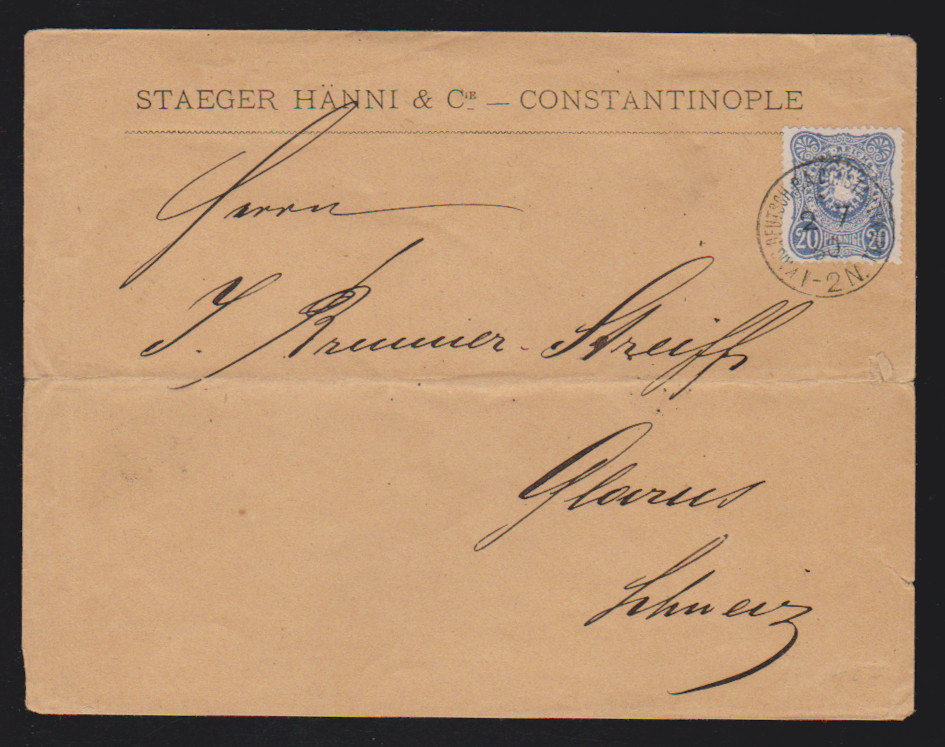 STAEGER HÄNNI & CIE — CONSTANTINOPLE
Herrn
J. Brunner-Streiff
Glarus
Schweiz
20 PFENNIG 20
DEUTSCH
2 7
1-2N.